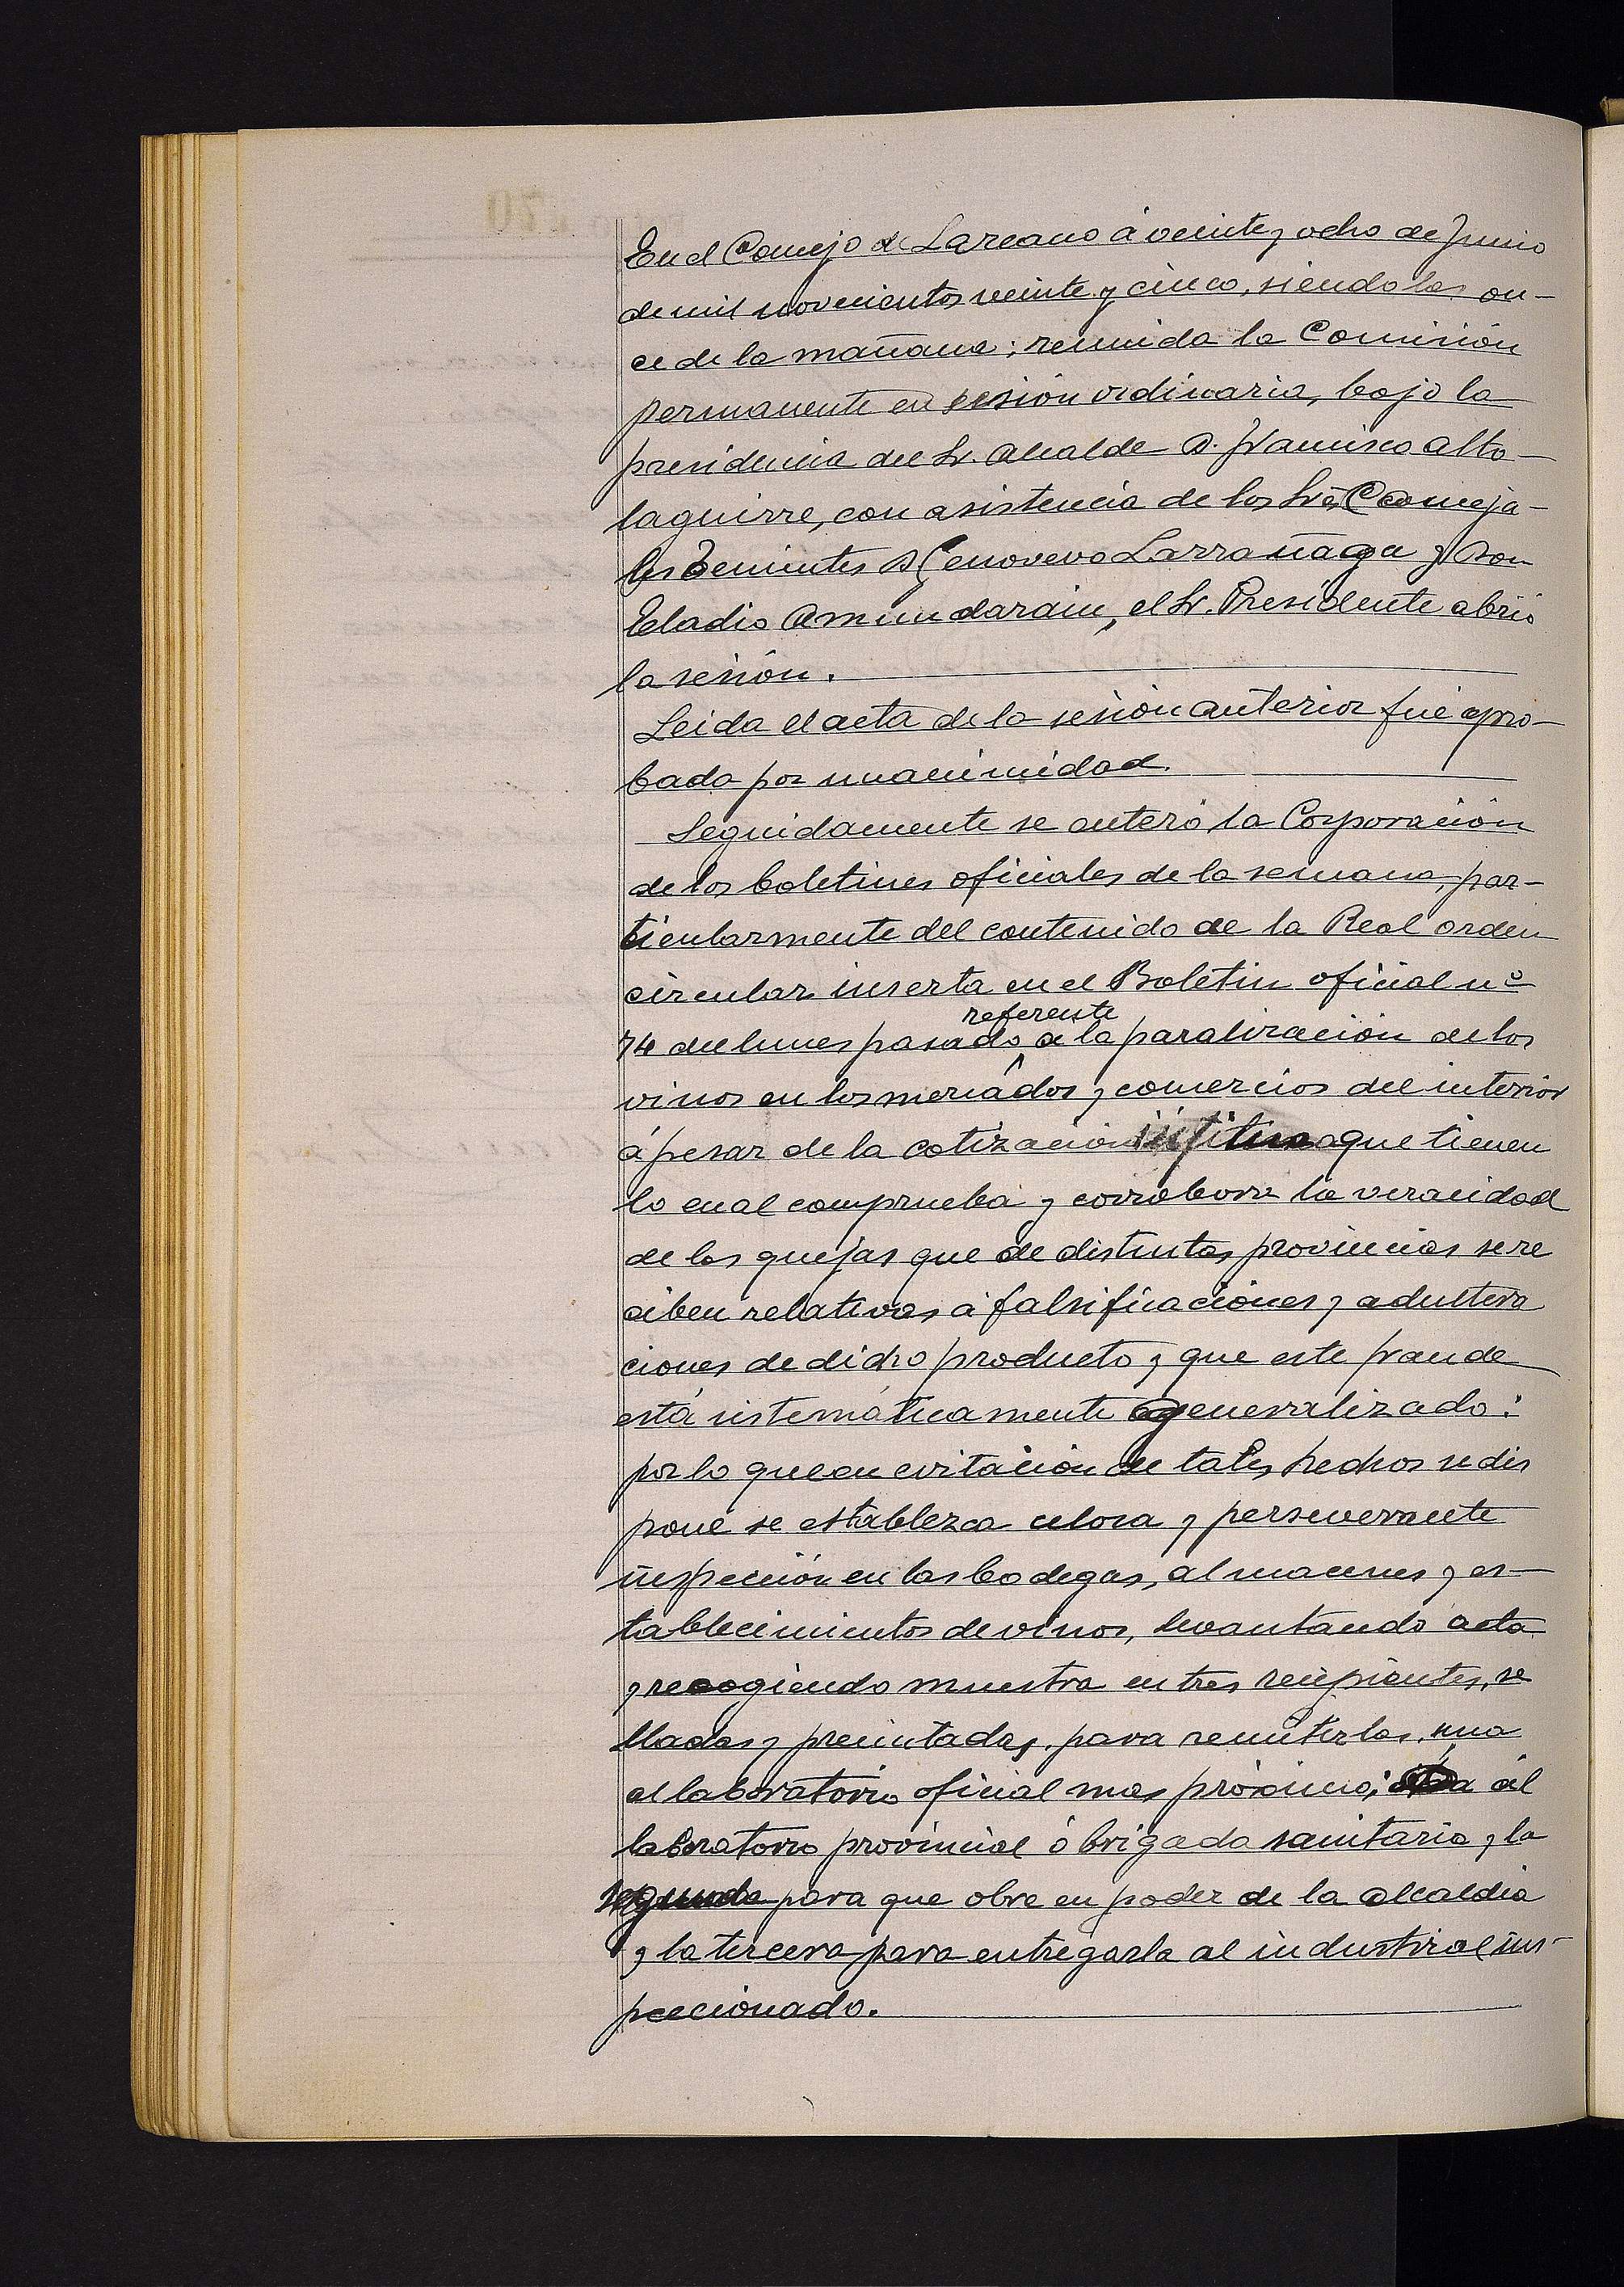 En el Concejo de Lazcano á veinte y ocho de Junio
de mil novecientos veinte y cinco, siendo las on-
ce de la mañana; reunida la Comisión
permanente en sesión ordinaria, bajo la
presidencia del Sr. Alcalde D. Francisco Alto-
laguirre, con asistencia de los Sres Conceja-
les Tenientes D Genovevo Larrañaga y Don
Eladio Amundarain, el Sr. Presidente abrió
la sesión.
Leida el acta de la sesión anterior fué apro-
bada por unanimidad.
Seguidamente se enteró la Corporación
de los boletines oficiales de la semana, par-
ticularmente del contenido de la Real orden
circular inserta en el Boletin oficial nº
74 del lunes pasado referente á la paralización de los
vinos en los mercados y comercios del interior
á pesar de la cotización ínfima que tienen
lo cual comprueba y corrobora la veracidad
de las quejas que de distintas provincias se re
ciben relativas á falsificaciones y adultera
ciones de dicho producto y que este fraude
está sistemáticamente generalizado:
por lo que en evitación de tales hechos se dis
pone se establezca celosa y perseverante
inspección en las bodegas, almacenes y es-
tablecimientos de vinos, levantando acta
y recogiendo muestra en tres recipientes, se
llados y precintados, para remitirlos, una
al laboratorio oficial mas próximo; al
laboratorio provincial ó brigada sanitaria y la
segunda para que obre en poder de la alcaldia
y la tercera para entregarla al industrial ins-
peccionado.